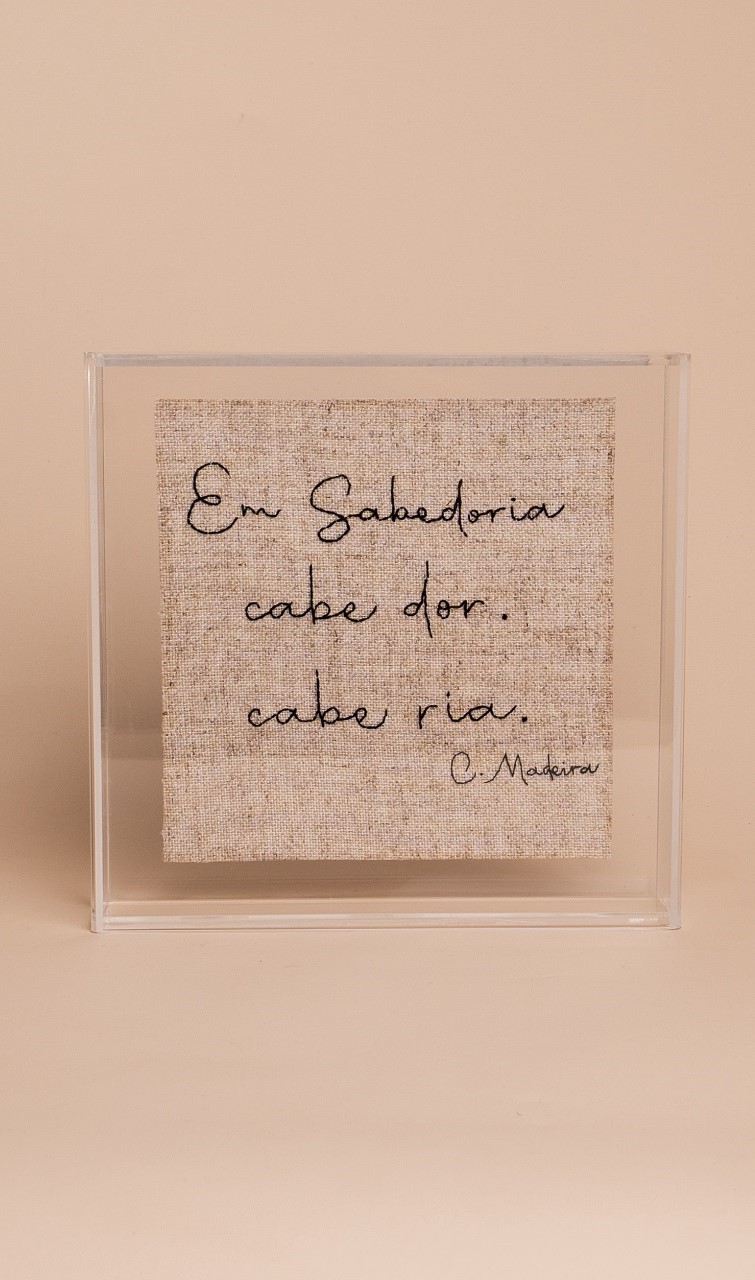 Em Sabedoria
cabe dor.
cabe ria.
C. Madeira